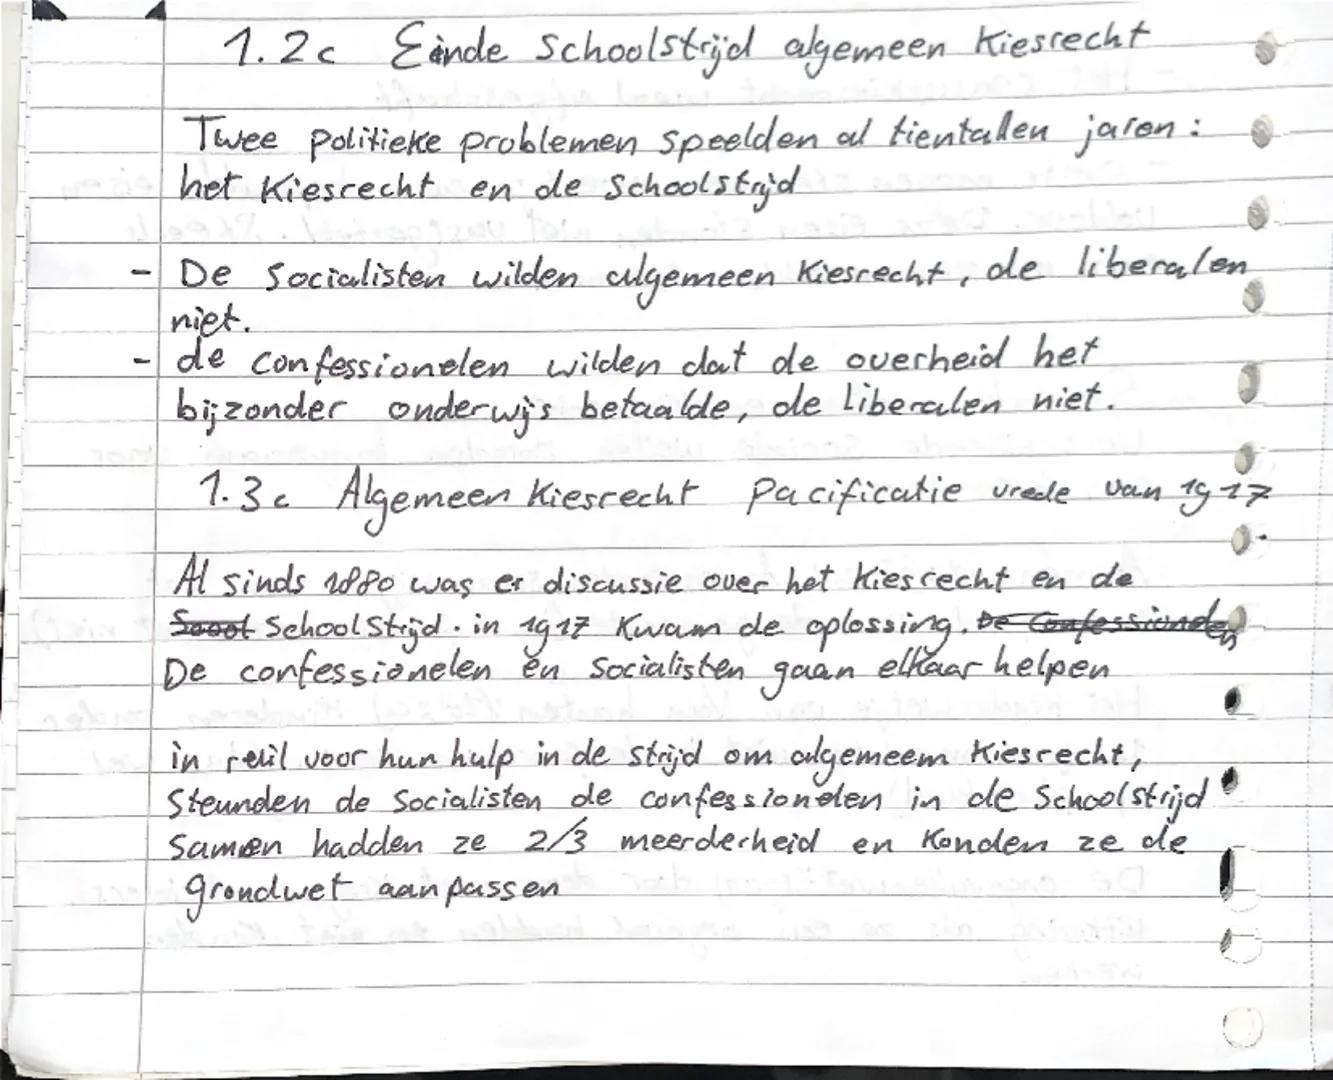 1.2c Einde Schoolstrijd algemeen Kiesrecht
Twee Politieke problemen speelden al tientallen jaren:
het Kiesrecht en de Schoolstrijd
- De Socialisten wilden algemeen Kiesrecht, de liberalen
niet.
- de confessionelen wilden dat de overheid het
bijzonder onderwijs betaalde, de liberalen niet.
1.3c Algemeen Kiesrecht Pacificatie vrede van 1917
Al sinds 1880 was er discussie over het Kiesrecht en de
SchoolStrijd. in 1917 Kwam de oplossing. De Confessionelen
De confessionelen en Socialisten gaan elkaar helpen
in reuil voor hun hulp in de strijd om algemeem Kiesrecht,
Steunden de Socialisten de confessionelen in de Schoolstrijd
Samen hadden ze 2/3 meerderheid en Konden ze de
grondwet aanpassen